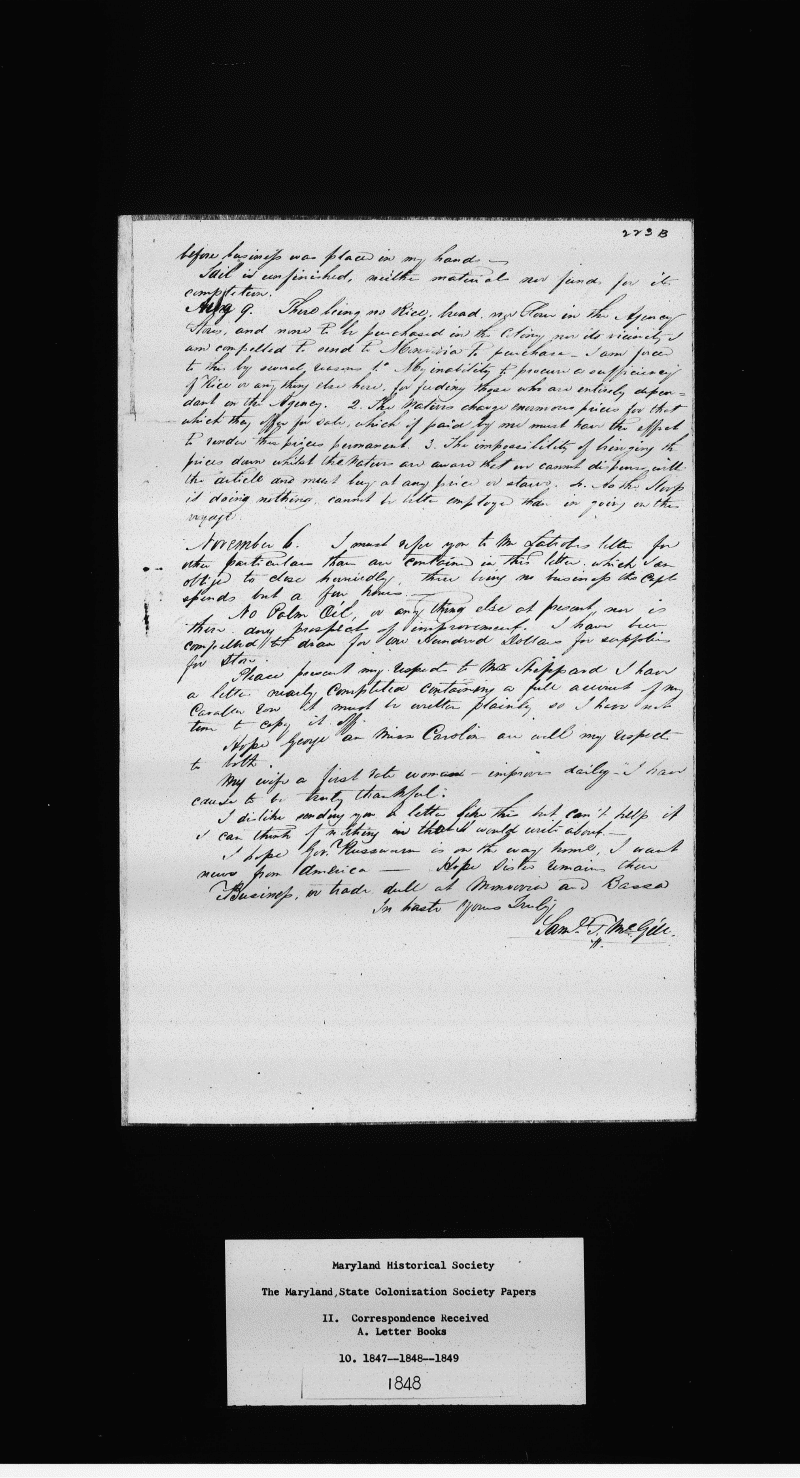 223 B
before business was placed in my hands —
Jail is unfinished, neither material nor funds for its
completion.
Aug 9. There being no Rice, bread, nor flour in the Agency
Store, and none to be purchased in the Colony nor its vicinity I
am compelled to send to Monrovia to purchase — I am forced
to this by several reasons 1st My inability to procure a sufficiency
of Rice or any thing else here, for feeding those who are entirely depen-
dant on the Agency. 2. The natives charge enormous prices for that
which they offer for sale, which if paid by me must have the effect
to render these prices permanent 3. The impossibility of bringing the
prices down whilst the natives are aware that we cannot dispense with
the article and must buy at any price or starve. 4. As the Sloop
is doing nothing cannot be better employed than in going on this
voyage.
November 6. I must refer you to Mr Latrobes letter for
other particulars than are contained in this letter which I am
obliged to close hurriedly, there being no business the Capt
spends but a few hours. —
No Palm Oil, or any thing else at present, nor is
there any prospect of improvement. I have been
compelled to draw for one Hundred Dollars for supplies
for Store.
Please present my respects to Mr Sheppard I have
a letter nearly completed containing a full account of my
Cavalla row it must be written plainly so I have not
time to copy it off.
Hope George an Miss Carolin are well my respects
to both.
My wife a first rate woman — improves daily — I have
cause to be truly thankful.
I dislike sending you a letter like this but can't help it
I can think of nothing in that I would write about —
I hope Gov. Russwurm is on the way home, I want
news from America — Hope Sister remains there
Business, or trade dull at Monrovia and Bassa
In haste Yours Truly
Saml. F. McGill.
Maryland Historical Society
The Maryland State Colonization Society Papers
II. Correspondence Received
A. Letter Books
10. 1847--1848--1849
1848